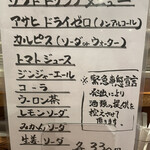 ソフトドリンクメニュー
アサヒ ドライゼロ(ノンアルコール)
カルピス(ソーダorウォーター)
トマトジュース
ジンジャーエール
コーラ
ウーロン茶
レモンソーダ
みかんソーダ
生姜ソーダ
各330円
※緊急事態宣言
発出により
酒類の提供を
控えさせて
頂きます。